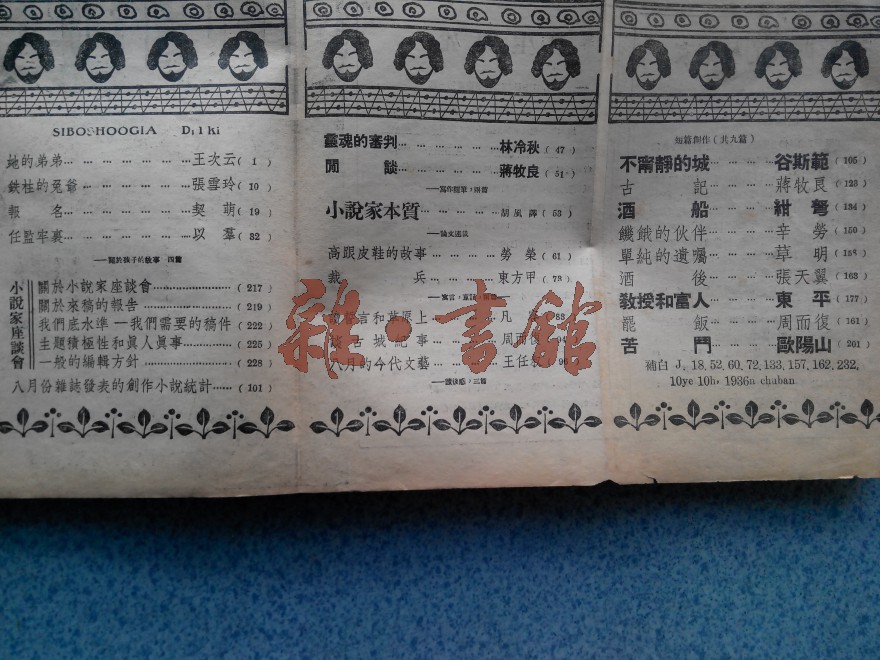 SIBOSHOOGIA D,1 ki
她的弟弟 王次云 ( 1 )
鉄柱的兎爺 張雪玲 ( 10 )
報名 契萌 ( 19 )
任監牢裏 以羣 ( 32 )
——關於孩子的故事 四篇
小說家座談會
關於小說家座談會 ( 217 )
關於來稿的報告 ( 219 )
我們底水準—我們需要的稿件 ( 222 )
主題積極性和眞人眞事 ( 225 )
一般的編輯方針 ( 228 )
八月份雜誌發表的創作小說統計 ( 101 )
靈魂的審判 林冷秋 ( 47 )
閒談 蔣牧良 ( 51 )
小說家本質 胡風譯 ( 53 )
高跟皮鞋的故事 勞榮 ( 61 )
裁兵 東方甲 ( 73 )
古城紀事 周而復
八月的今代文藝 王任
雜·書舘
短篇創作 (共九篇)
不甯靜的城 谷斯範 ( 105 )
古記 蔣牧良 ( 123 )
酒船 紺弩 ( 134 )
饑餓的伙伴 辛勞 ( 150 )
單純的遺囑 草明 ( 158 )
酒後 張天翼 ( 163 )
敎授和富人 東平 ( 177 )
罷飯 周而復 ( 161 )
苦鬥 歐陽山 ( 201 )
補白 J, 18, 52, 60, 72, 133, 157, 162, 232,
10ye 10h, 1936n chuban